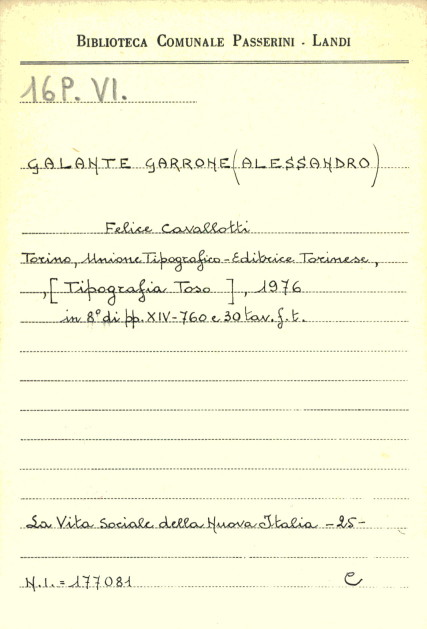 BIBLIOTECA COMUNALE PASSERINI - LANDI
16 P. VI.
GALANTE GARRONE (ALESSANDRO)
Felice Cavallotti
Torino, Unione Tipografico-Editrice Torinese,
,[Tipografia Toso], 1976
in 8° di pp. XIV-760 e 30 tav. f. t.
La Vita Sociale della Nuova Italia -25-
N.I. = 177081 C